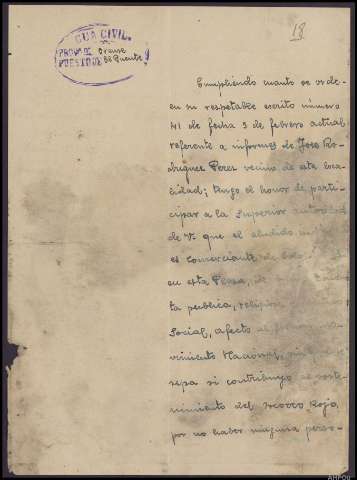 18
GUA CIVIL.
PROVA DE Orense
PUESTO DE El Puente
Cumpliendo cuanto se orde-
en su respetable escrito número
41 de fecha 5 de febrero actual
referente a informes de Jose Ro-
driguez Perez vecino de esta loca-
lidad; tengo el honor de parti-
cipar a la Superior autoridad
de V. que el aludido
es comerciante de
en esta Plaza, de
ta publica, religiosa
Social, afecto al
vimiento Nacional, sin que se
sepa si contribuyó al soste-
nimiento del Socorro Rojo,
por no haber ninguna perso-
AHPOu